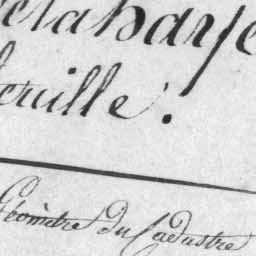 elahaye
euille.
Géomètre du Cadastre